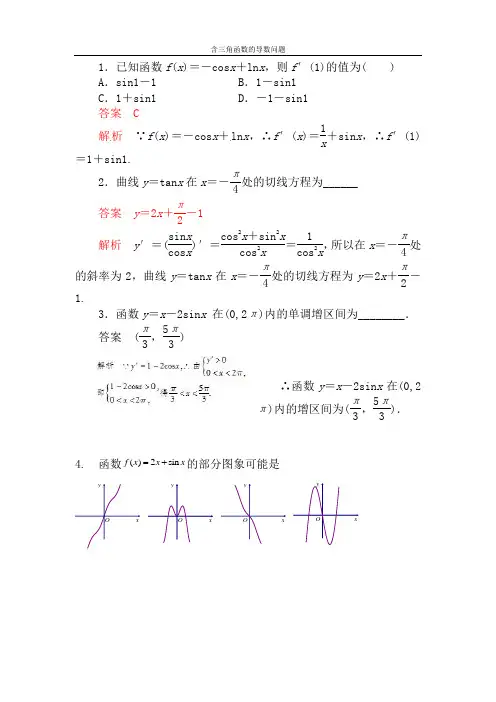 含三角函数的导数问题
1．已知函数f(x)＝－cosx＋lnx，则f′(1)的值为(　　)
A．sin1－1　　B．1－sin1
C．1＋sin1　　D．－1－sin1
答案　C
解析　∵f(x)＝－cosx＋lnx，∴f′(x)＝1/x＋sinx，∴f′(1)
＝1＋sin1.
2．曲线y＝tanx在x＝－π/4处的切线方程为______
答案　y＝2x＋π/2－1
解析　y′＝(sinx/cosx)′＝(cos²x＋sin²x)/cos²x＝1/cos²x，所以在x＝－π/4处
的斜率为2，曲线y＝tanx在x＝－π/4处的切线方程为y＝2x＋π/2－
1.
3．函数y＝x－2sinx 在(0,2π)内的单调增区间为________．
答案　(π/3，5π/3)
解析　∵y′＝1－2cosx，∴由{y′>0
0<x<2π，
即{1－2cosx>0，
0<x<2π，得π/3<x<5π/3.
∴函数y＝x－2sinx在(0,2
π)内的增区间为(π/3，5π/3)．
4.　函数f(x)=2x+sinx的部分图象可能是
y y y y
O x O x O x O x